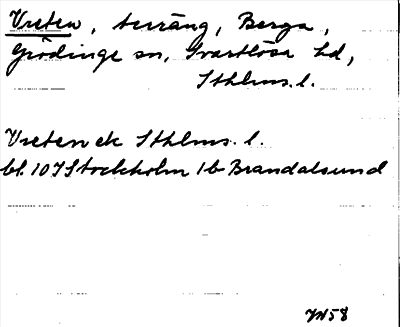 Vreten, terräng, Berga,
Grödinge sn, Svartlösa hd,
Sthlms. l.
Vreten ek Sthlms. l.
bl. 10 I Stockholm 1b Brandalsund